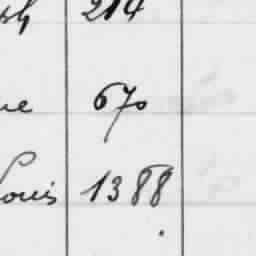 214
670
Louis 1388